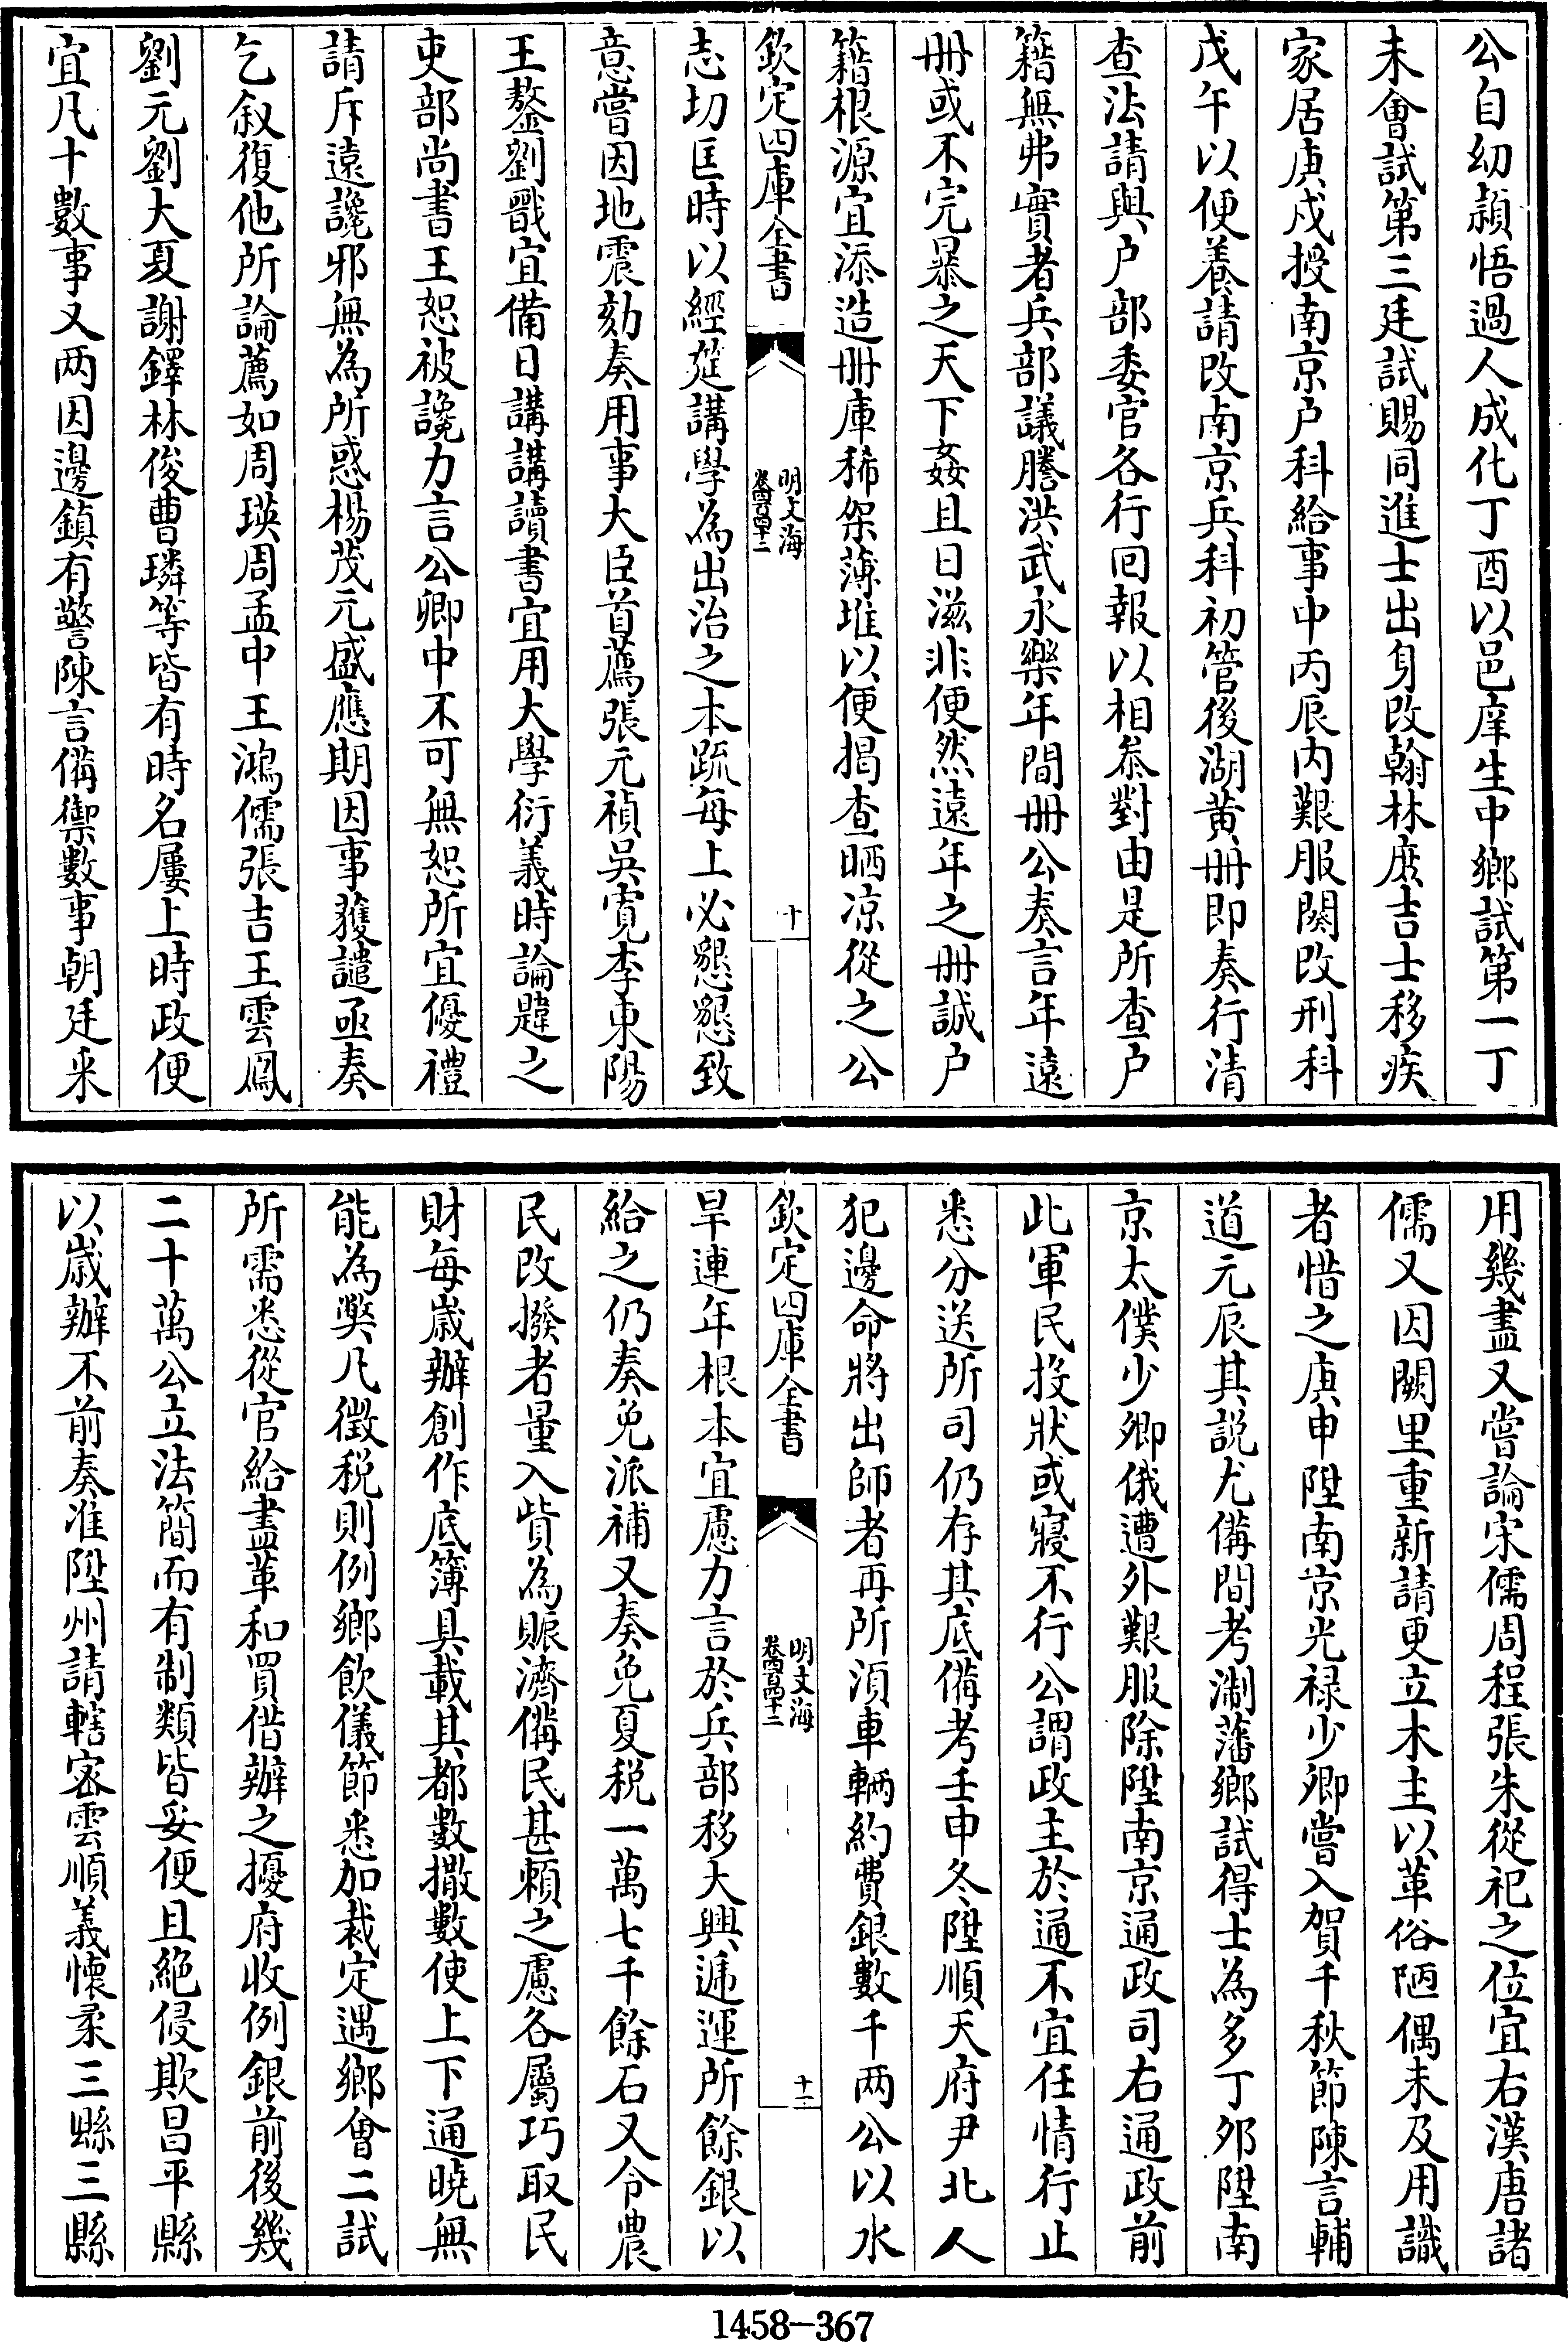 公自幼頴悟過人成化丁酉以邑庠生中鄉試第一丁
未會試第三廷試賜同進士出身改翰林庶吉士移疾
家居庚戍授南京户科給事中丙辰内艱服闋改刑科
戊午以便養請改南京兵科初管後湖黄冊即奏行清
查法請與户部委官各行回報以相叅對由是所查户
籍無弗實者兵部議謄洪武永樂年間冊公奏言年遠
冊或不完暴之天下姦且日滋非便然遠年之冊誠户
籍根源宜添造冊庫稀架薄堆以便揭查晒凉從之公
欽定四庫全書
明文海
卷四百四十二
十
志切匡時以經筵講學為出治之本疏每上必懇懇致
意嘗因地震劾奏用事大臣首薦張元禎吳寛李東陽
王鏊劉戩宜備日講講讀書宜用大學衍義時論韙之
吏部尚書王恕被讒力言公卿中不可無恕所宜優禮
請斥遠讒邪無為所惑楊茂元盛應期因事獲譴亟奏
乞叙復他所論薦如周瑛周孟中王鴻儒張吉王雲鳳
劉元劉大夏謝鐸林俊曹璘等皆有時名屢上時政便
宜凡十數事又两因邊鎮有警陳言備禦數事朝廷采
用幾盡又嘗論宋儒周程張朱從祀之位宜右漢唐諸
儒又因闕里重新請更立木主以革俗陋偶未及用識
者惜之庚申陞南京光禄少卿嘗入賀千秋節陳言輔
道元辰其説尤備間考淛藩鄉試得士為多丁夘陞南
京太僕少卿俄遭外艱服除陞南京通政司右通政前
此軍民投狀或寢不行公謂政主於通不宜任情行止
悉分送所司仍存其底備考壬申冬陞順天府尹北人
犯邊命將出師者再所湏車輛約費銀數千两公以水
欽定四庫全書
明文海
卷四百四十二
十一
旱連年根本宜慮力言於兵部移大興遞運所餘銀以
給之仍奏免派補又奏免夏税一萬七千餘石又令農
民改撥者量入貲為賑濟備民甚頼之慮各屬巧取民
財每嵗辦創作底簿具載其都數撒數使上下通曉無
能為獘凡徴税則例鄉飲儀節悉加裁定遇鄉會二試
所需悉從官給盡革和買借辦之擾府收例銀前後幾
二十萬公立法簡而有制類皆妥便且絶侵欺昌平縣
以嵗辦不前奏准陞州請轄宻雲順義懷柔三縣三縣
1458-367